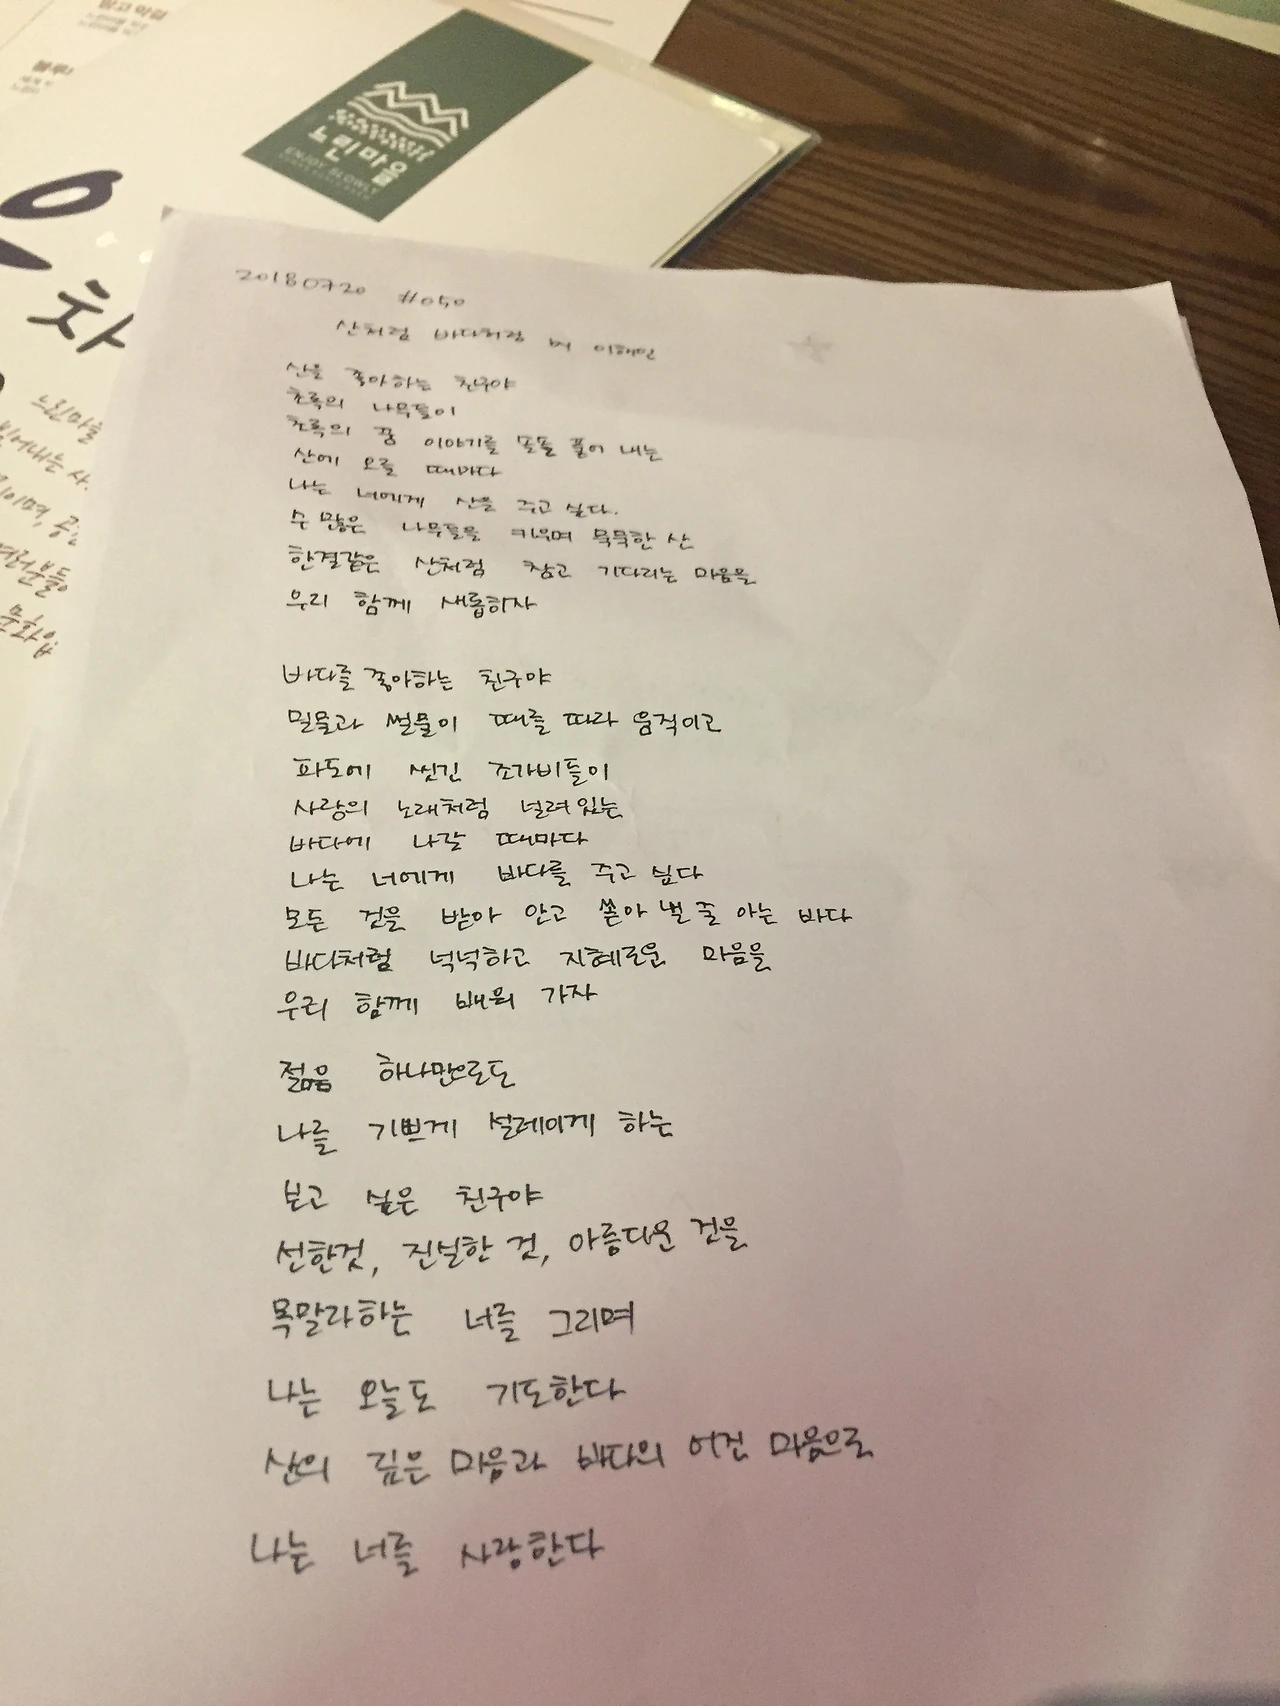 느린마을
ENJOY SLOWLY
차
느린마을
20180720 #050
산처럼 바다처럼 by 이해인
산을 좋아하는 친구야
초록의 나무들이
초록의 꿈 이야기를 솔솔 풀어 내는
산에 오를 때마다
나는 너에게 산을 주고 싶다.
수 많은 나무들을 키우며 묵묵한 산
한결같은 산처럼 참고 기다리는 마음을
우리 함께 새롭히자
바다를 좋아하는 친구야
밀물과 썰물이 때를 따라 움직이고
파도에 씻긴 조가비들이
사랑의 노래처럼 널려있는
바다에 나갈 때마다
나는 너에게 바다를 주고 싶다
모든 것을 받아 안고 쏟아 낼 줄 아는 바다
바다처럼 넉넉하고 지혜로운 마음을
우리 함께 배워 가자
젊음 하나만으로도
나를 기쁘게 설레이게 하는
보고 싶은 친구야
선한것, 진실한 것, 아름다운 것을
목말라하는 너를 그리며
나는 오늘도 기도한다
산의 깊은 마음과 바다의 어진 마음으로
나는 너를 사랑한다